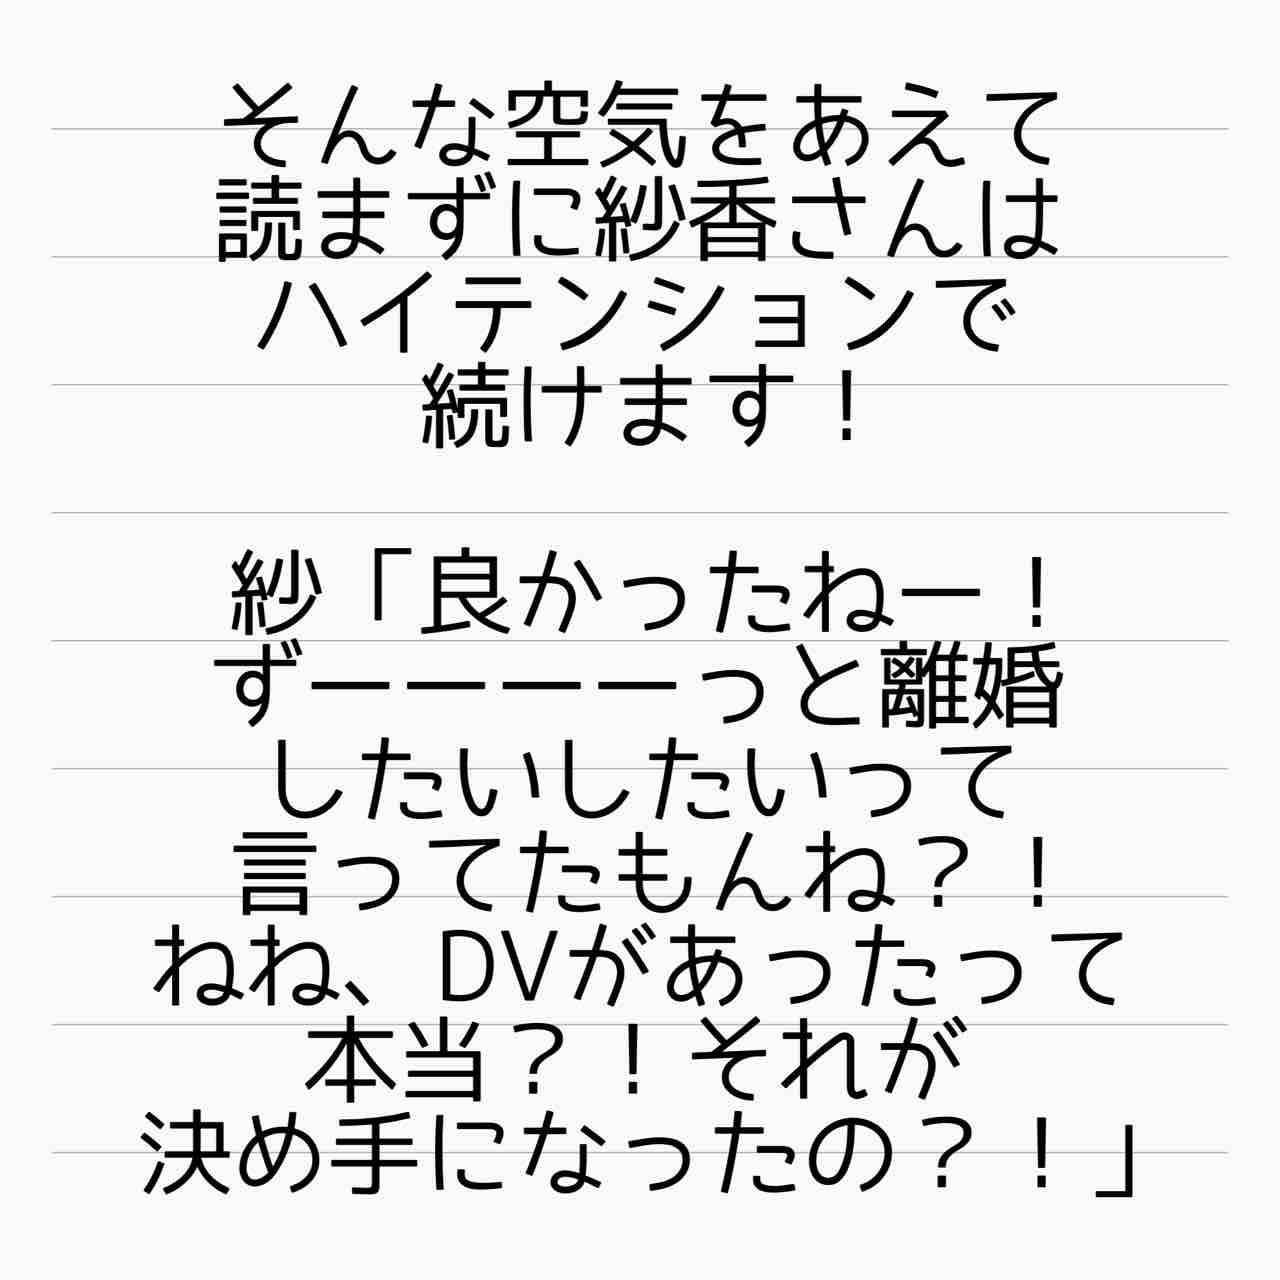 そんな空気をあえて
読まずに紗香さんは
ハイテンションで
続けます！
紗「良かったねー！
ずーーーーっと離婚
したいしたいって
言ってたもんね？！
ねね、DVがあったって
本当？！それが
決め手になったの？！」